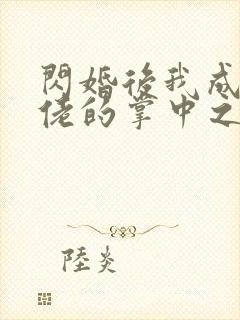 閃婚後我成
佬的掌中之
陸炎